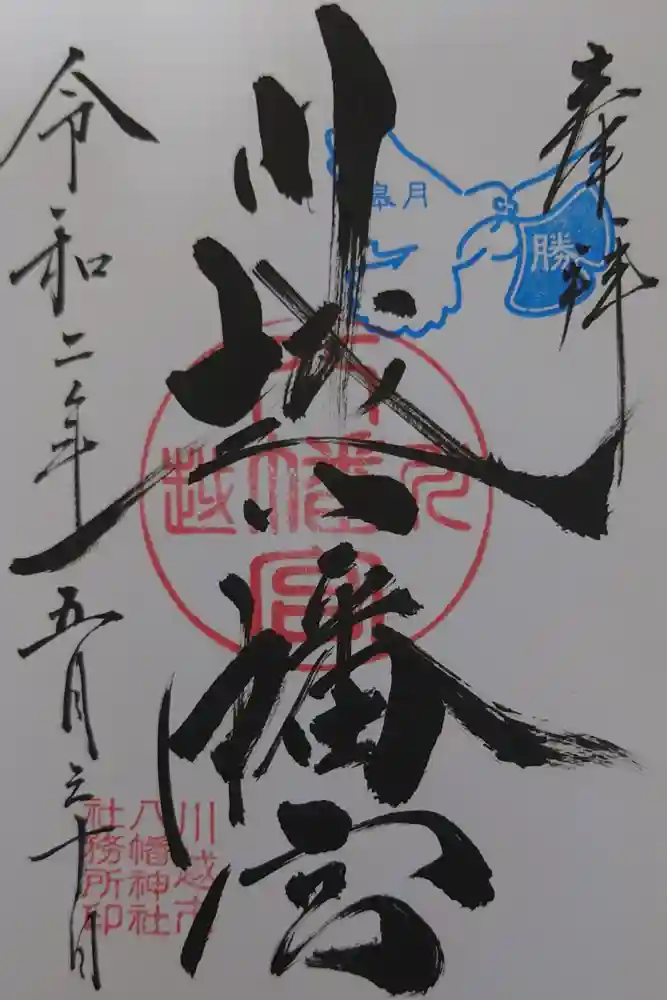 奉拝
皐月
勝
川越八幡宮
川越
八幡宮
川越市
八幡神社
社務所印
令和二年五月三十日